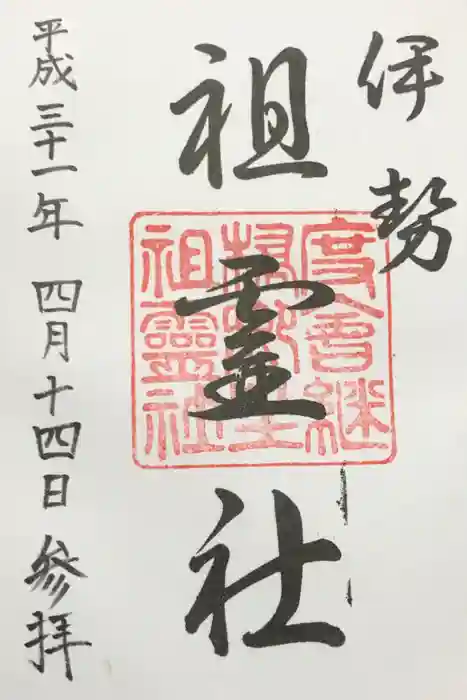 伊勢
祖霊社
平成三十一年 四月十四日 参拝
度会継
祖靈社